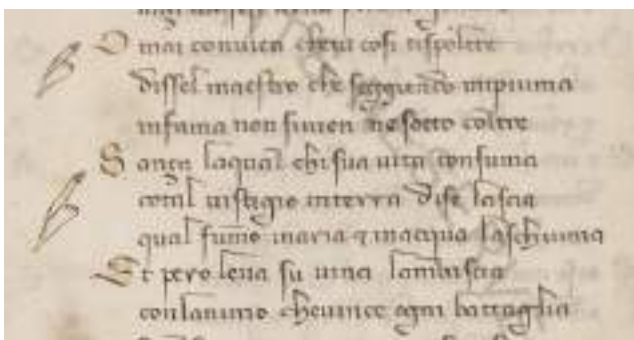 O mai convien cheui cosi tispoltre
dissel maestro che seggiendo inpiuma
infama non siuien ne sotto coltre
S anza laqual chi sua uita consuma
cotal uestigio interra dise lascia
qual fumo inaria & inacqua laschiuma
Et pero leua su uinci lambascia
conlanimo cheuince ogni battaglia